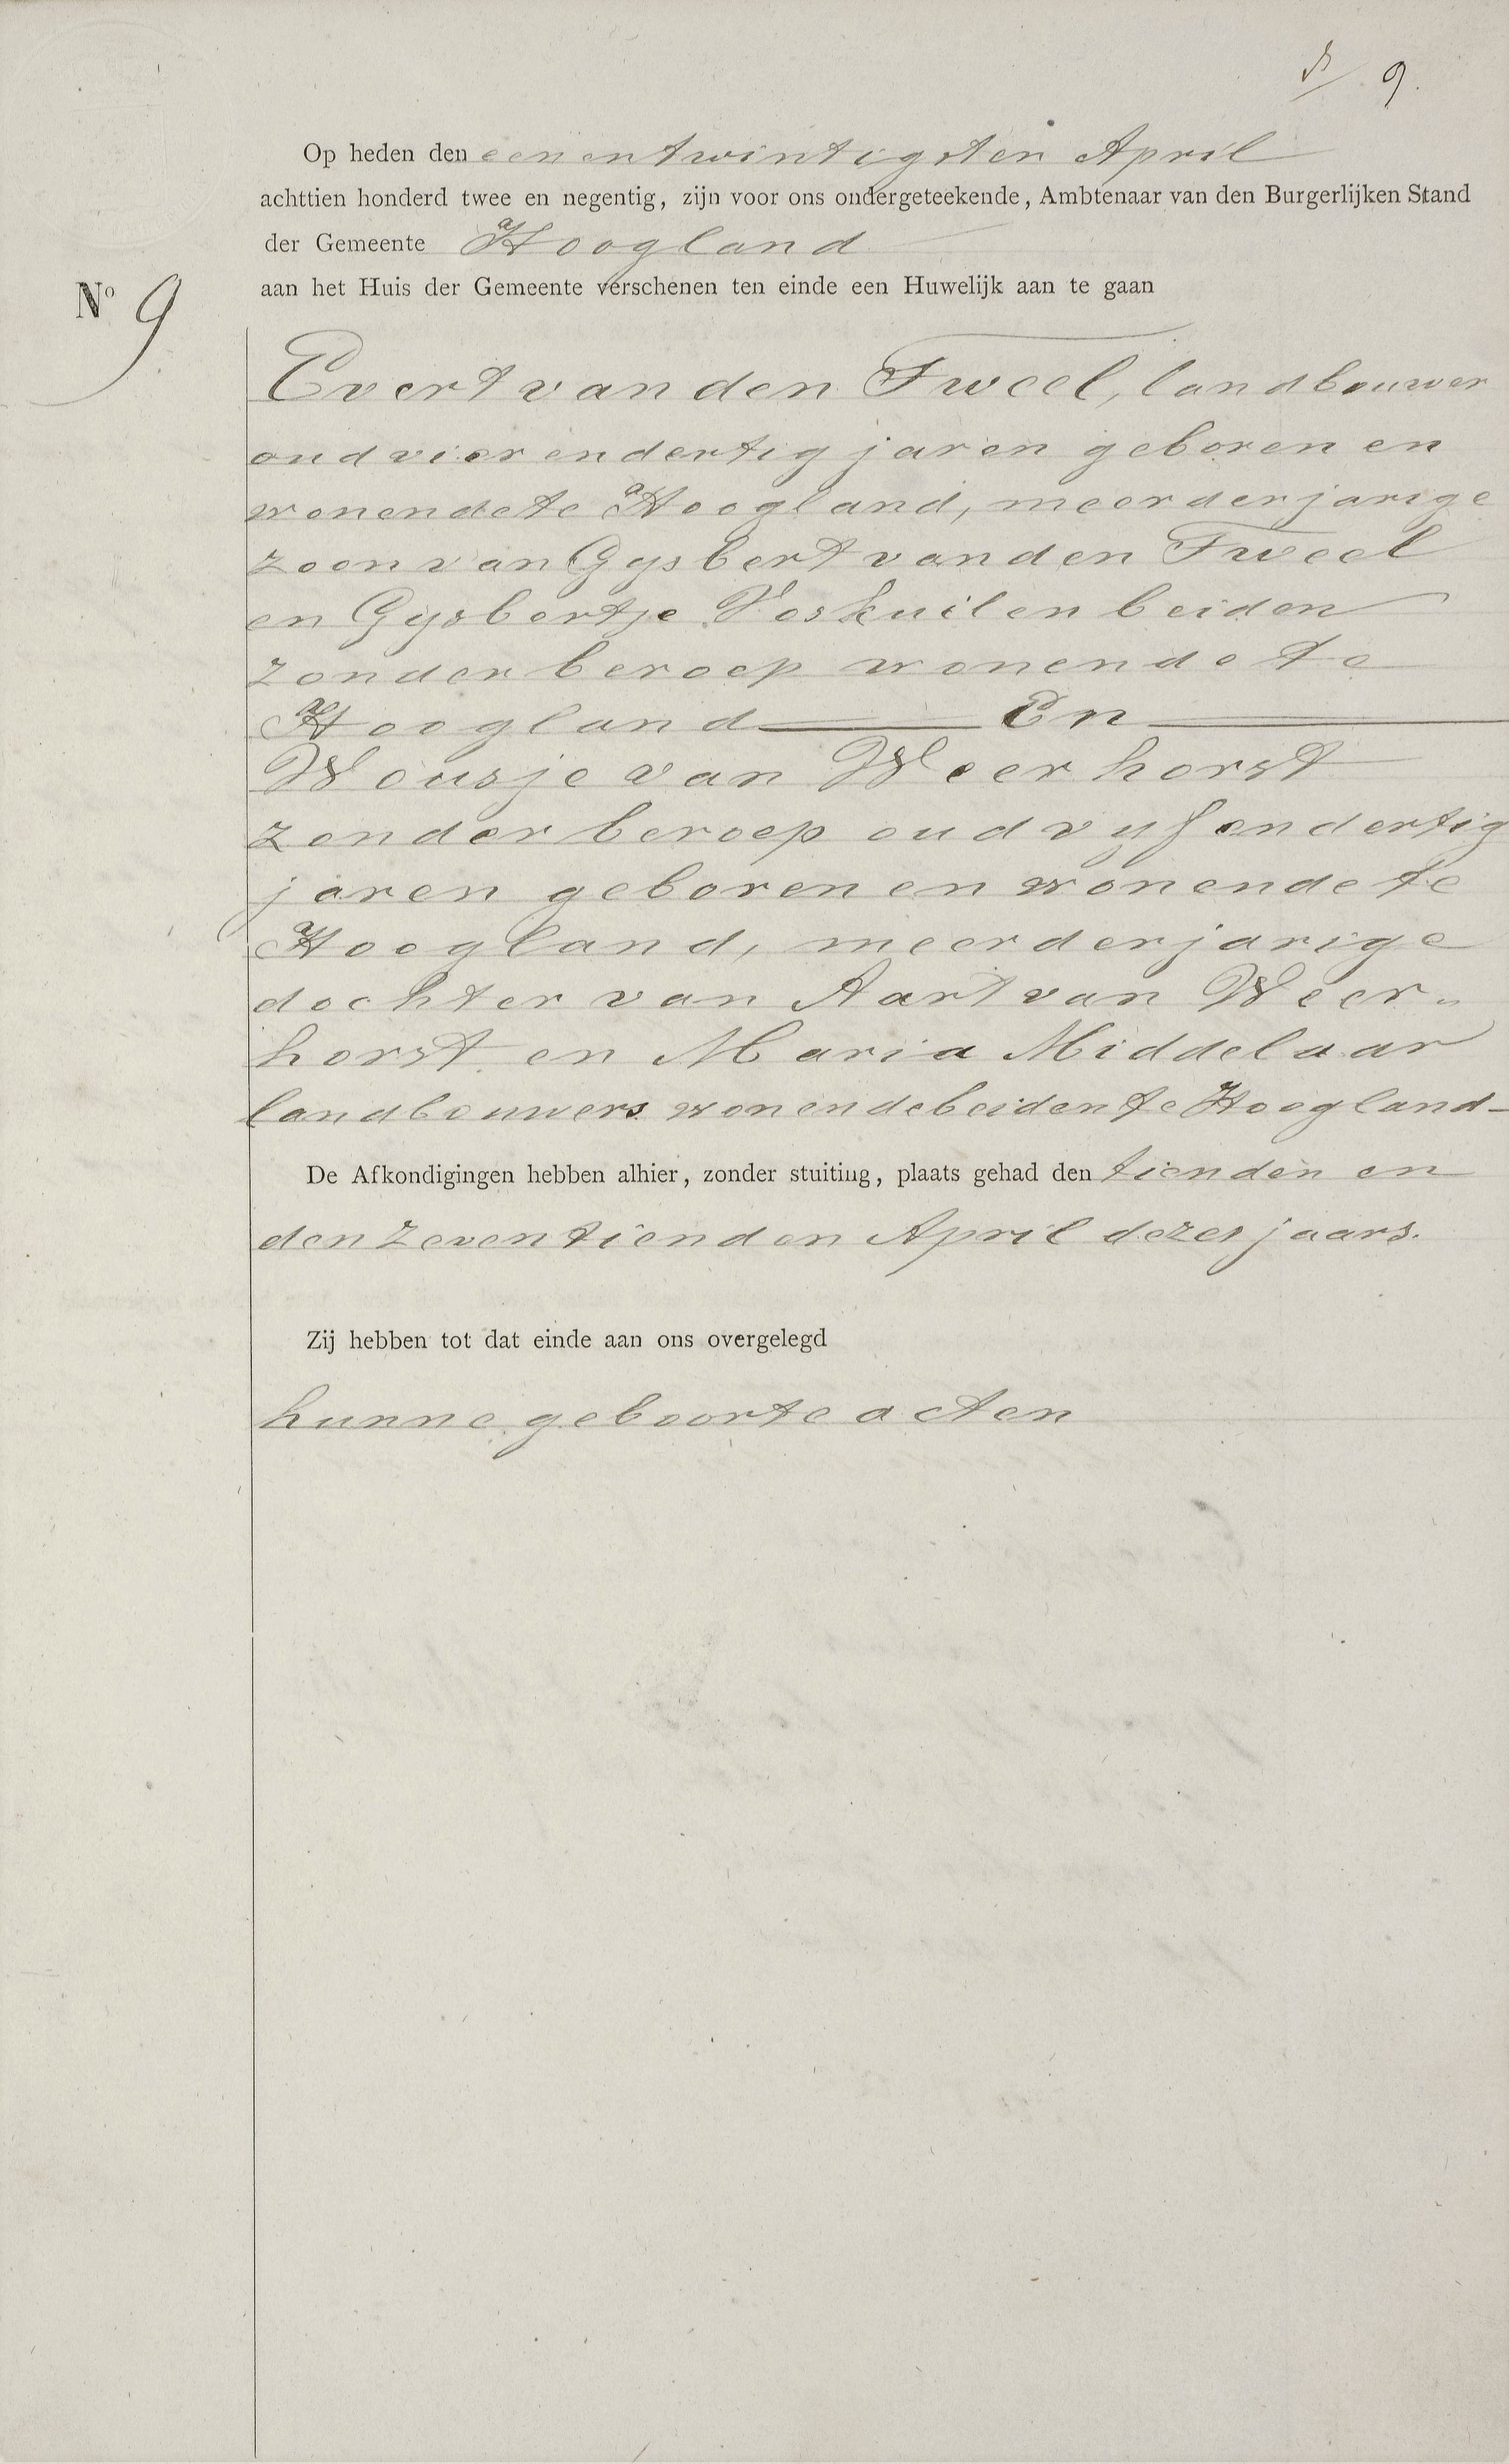 9.
Op heden den eenentwintigsten April
achttien honderd twee en negentig, zijn voor ons ondergeteekende, Ambtenaar van den Burgerlijken Stand
der Gemeente Hoogland
aan het Huis der Gemeente verschenen ten einde een Huwelijk aan te gaan
No 9
Evert van den Tweel, landbouwer
oud vierendertig jaren geboren en
wonende te Hoogland, meerderjarige
zoon van Gysbert van den Tweel
en Gijsbertje Voskuilen beiden
zonder beroep wonende te
Hoogland — En —
Wousje van Weerhorst
zonder beroep oud vyfendertig
jaren geboren en wonende te
Hoogland, meerderjarige
dochter van Aart van Weer„
horst en Maria Middelaar
landbouwers wonende beiden te Hoogland -
De Afkondigingen hebben alhier, zonder stuiting, plaats gehad den tienden en
den zeventienden April dezes jaars.
Zij hebben tot dat einde aan ons overgelegd
hunne geboorte acten